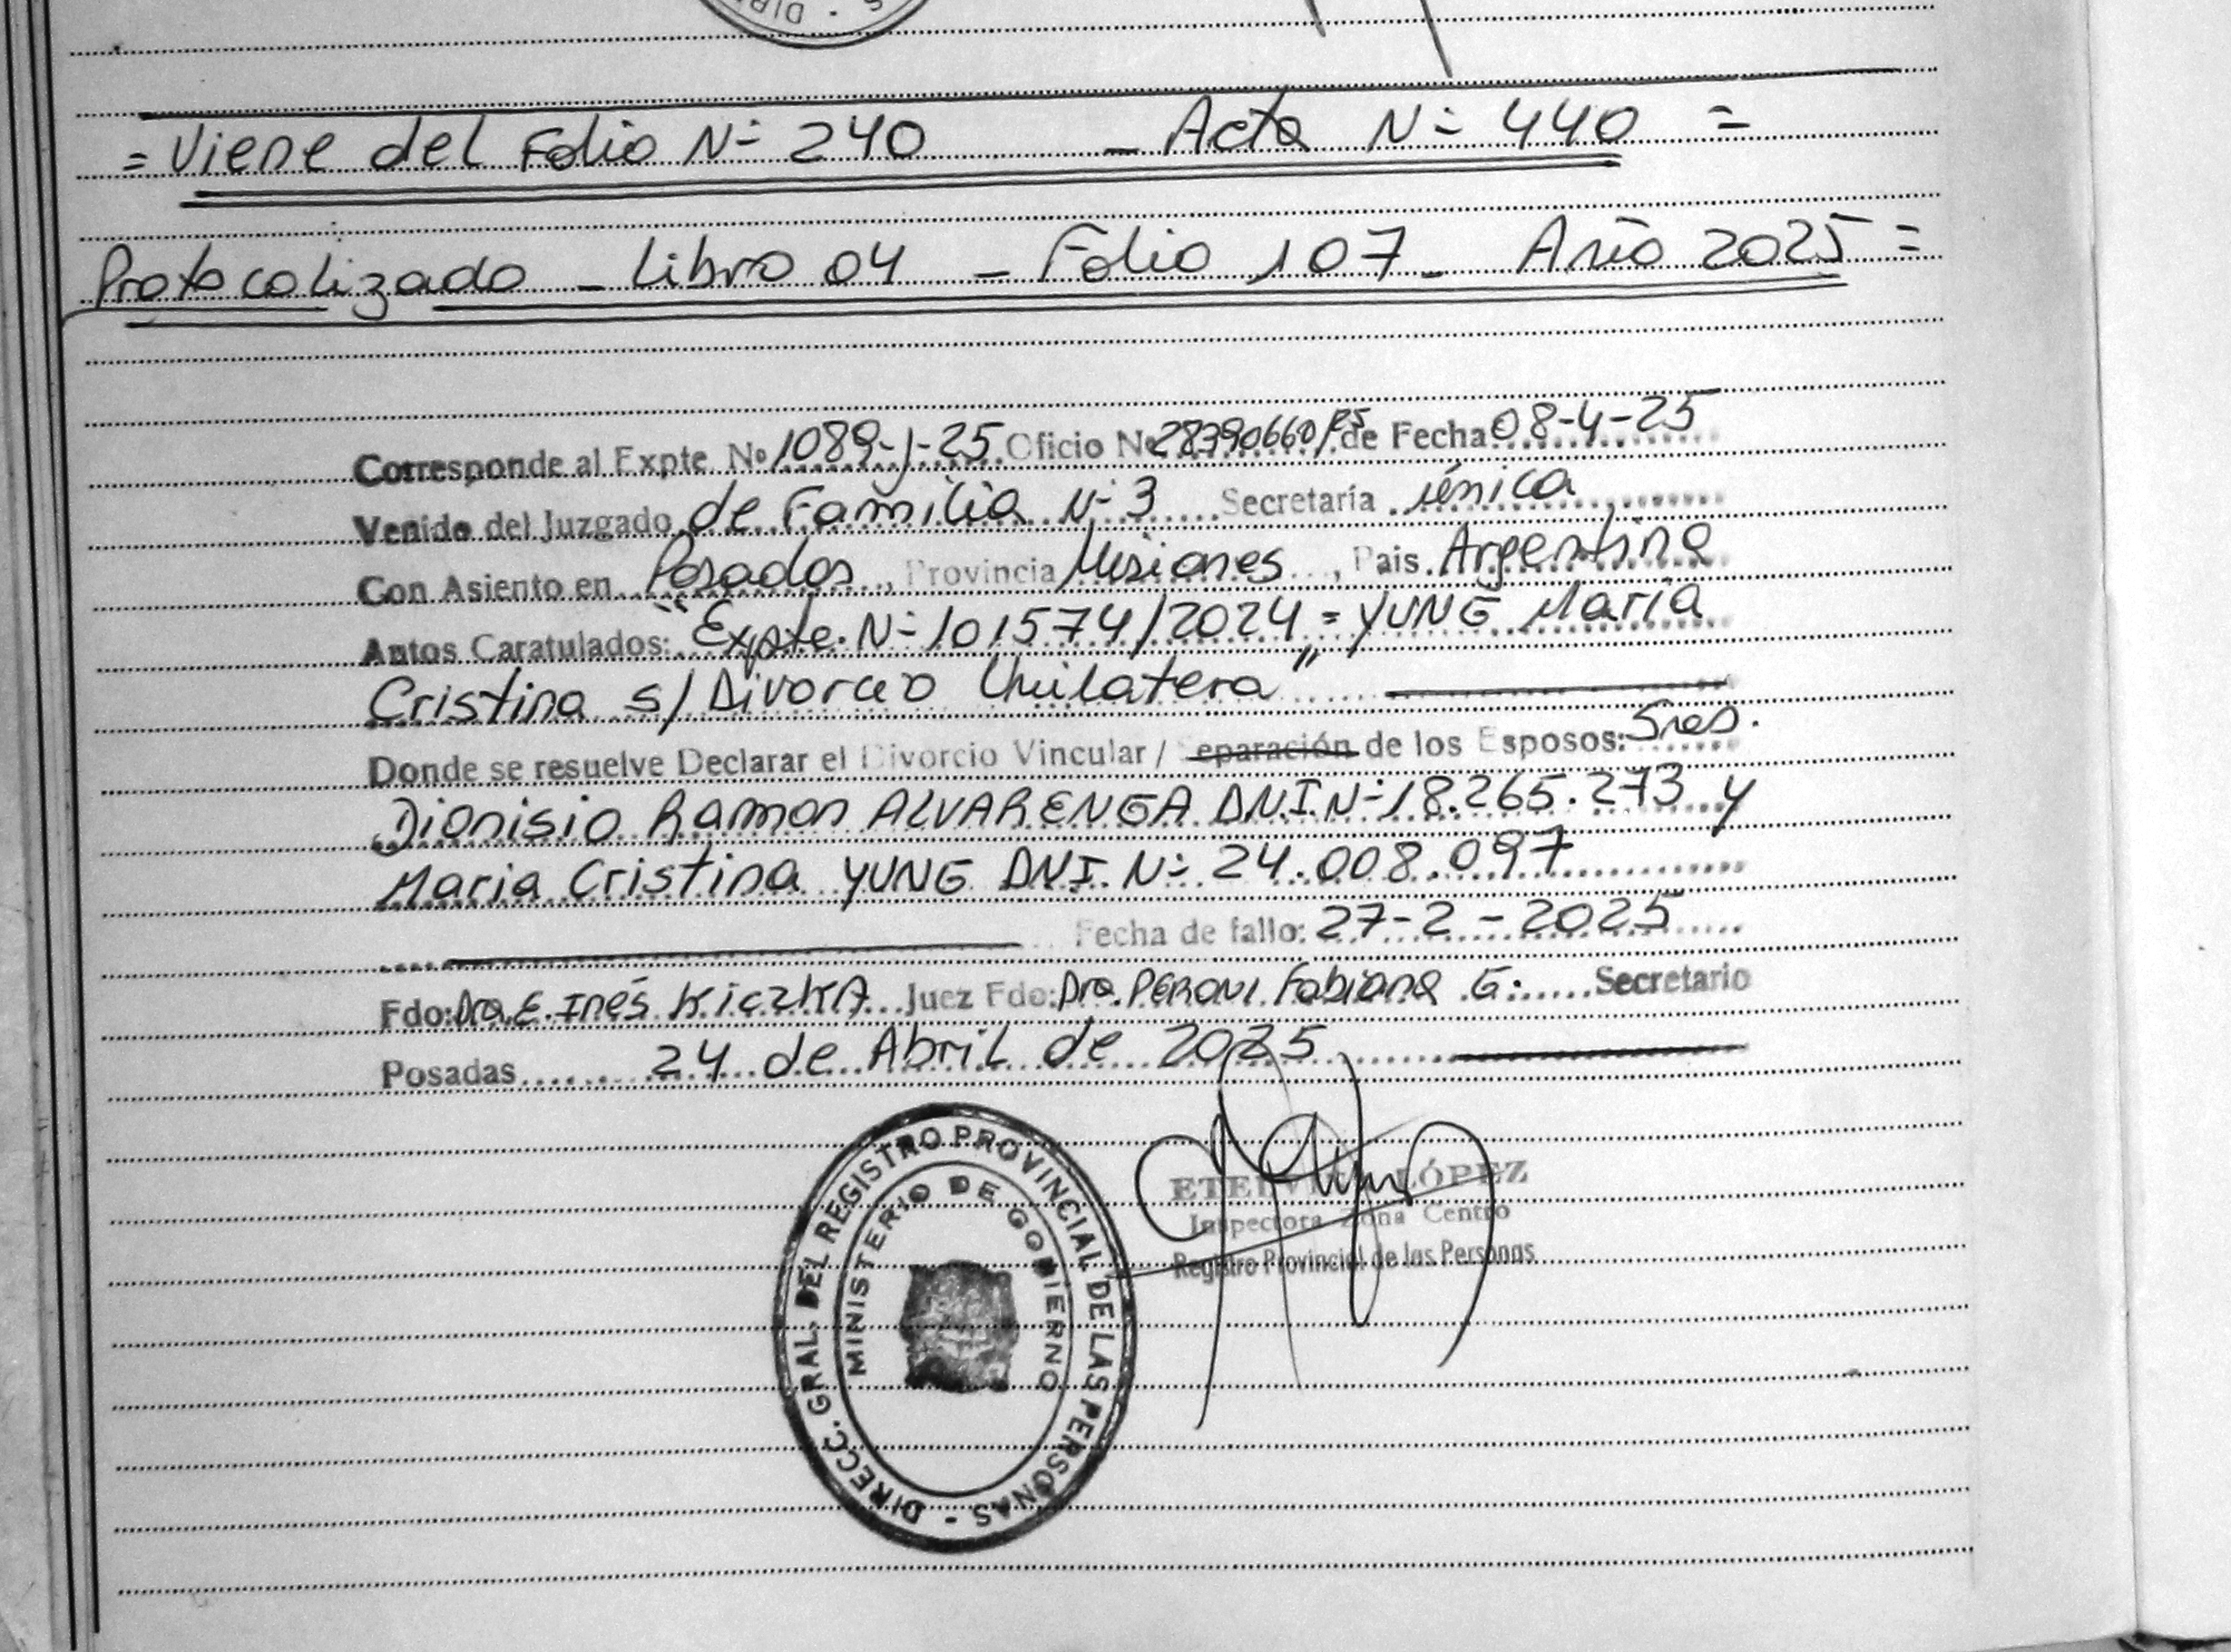 = Viene del Folio N= 240 - Acta N= 440 =
Protocolizado - Libro 04 - Folio 107 - Año 2025 =
Corresponde al Expte Nº 1089-J-25 Oficio Nº 28390660/25 de Fecha 08-4-25
Venido del Juzgado de Familia N=3 Secretaría única
Con Asiento en Posadas, Provincia Misiones, Pais Argentina
Autos Caratulados: "Expte. N=101574/2024 = YUNG María
Cristina s/ Divorcio Unilatera"
Donde se resuelve Declarar el Divorcio Vincular / eparación de los Esposos: Sres.
Dionisio Ramon ALVARENGA DNI.N=18.265.273 y
Maria Cristina YUNG DNI. N= 24.008.097
Fecha de fallo: 27-2-2025
Fdo: Dra E. Inés KICZKA Juez Fdo: Dra. PERONI Fabiana G. Secretario
Posadas 24 de Abril de 2025
DIRECC. GRAL. DEL REGISTRO PROVINCIAL DE LAS PERSONAS -
MINISTERIO DE GOBIERNO
LÓPEZ
Inspectora Zona Centro
Registro Provincial de las Personas